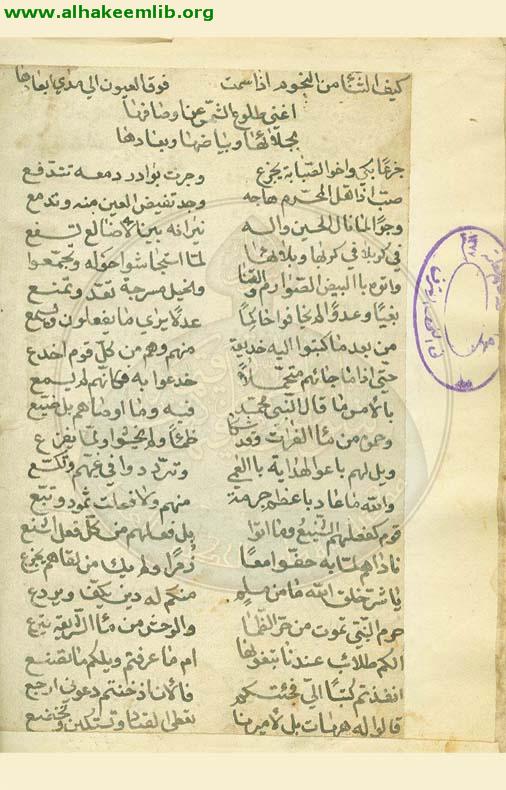 www.alhakeemlib.org
كيف الثنا من النجوم اذا سمت فوق العيون الى مدى ابعادها
اغنى طلوع الشمس عن اوصافها
بجلائها وبياضها وبعادها
جزعا بكى واخو الصبابة يجزع وجرت بوادر دمعه تتدفع
صب اذا هل المحرم هاجه وجد تفيض العين منه وتدمع
وجوا لما نال الحسين واله نيرانه بين الاضالع تسفع
في كربلا في كربها وبلائها لما استجاشوا حوله وتجمعوا
بالبيض الصوارم والقنا والخيل مسرجة تقد وتمنع
بغيا وعدوا لم يخافوا حاكما عدلا يرى ما يفعلون ويسمع
من بعد ما كتبوا اليه خديعة منهم وهم من كل قوم اخدع
حتى اذا ما جائهم خدعوا به فكانهم لم يسمعوا
بالامس ما قال النبي محمد فيه وما اوصاهم بل ضيعوا
وحموه من ماء الفرات وقد شكا ظمأ ولم يخشوا
ويل لهم باعوا الهداية بالعمى وترددوا في غيهم
والله ما عاد باعظم جرمة منهم ولا فعلت ثمود وتبع
قوم كفعلهم الشنيع وما اتوا بل فعلهم من كل فعل اشنع
ناداهم لما به حفوا معا زمرا ولم يك من لقاهم يجزع
يا شر خلق الله ما من مسلم منكم له دين يكف ويردع
حرم النبي تموت من حر الظما والوحش من ماء
الكم طلائب عندنا تبغونها ام ما عرفتم ويلكم ما نصنع
انفذتم كتبا الي فجئتكم فالان اذ خنتم دعوني ارجع
قالوا له هيهات بل لاميرنا تعطي القياد وتستكين وتخضع